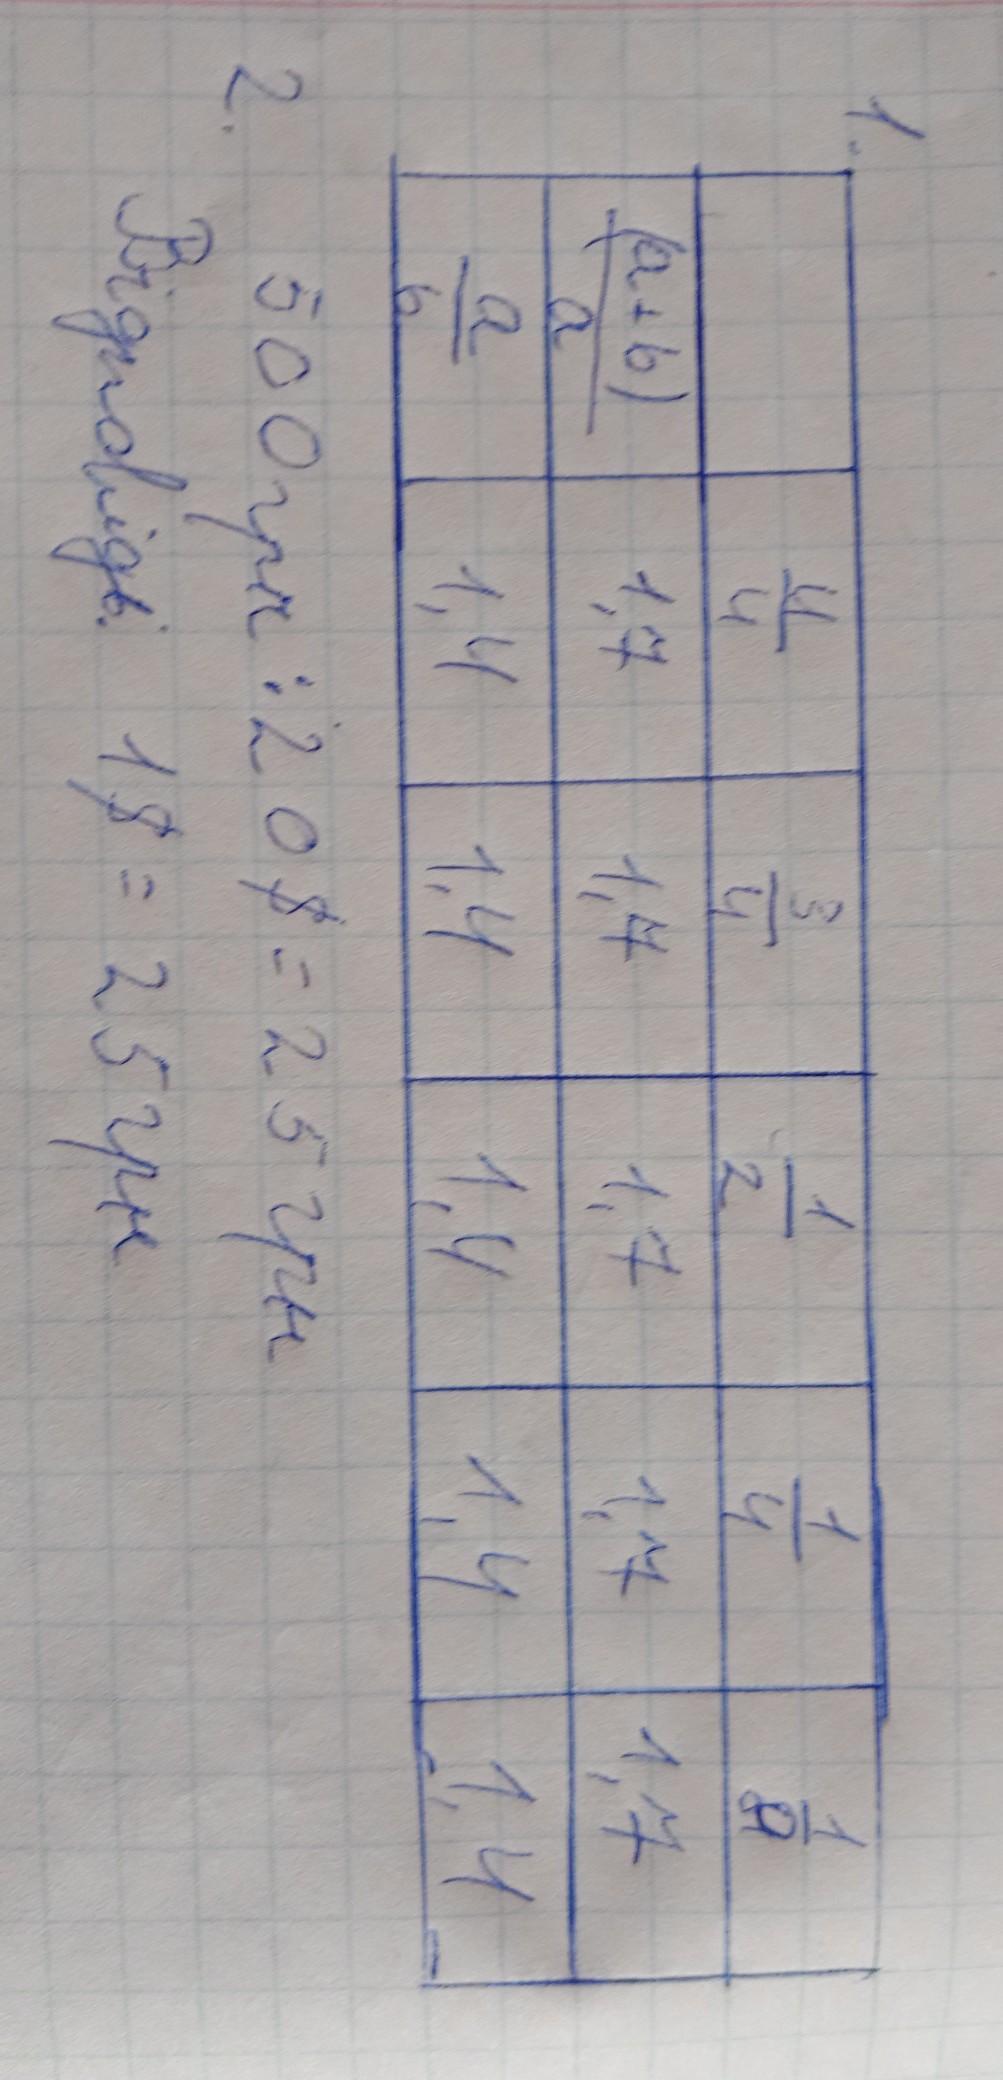 1.
4/4 3/4 1/2 1/4 1/8
(a+b)/a 1,7 1,7 1,7 1,7 1,7
a/b 1,4 1,4 1,4 1,4 1,4
2. 500грн : 20$ = 25грн
Відповідь: 1$ = 25грн